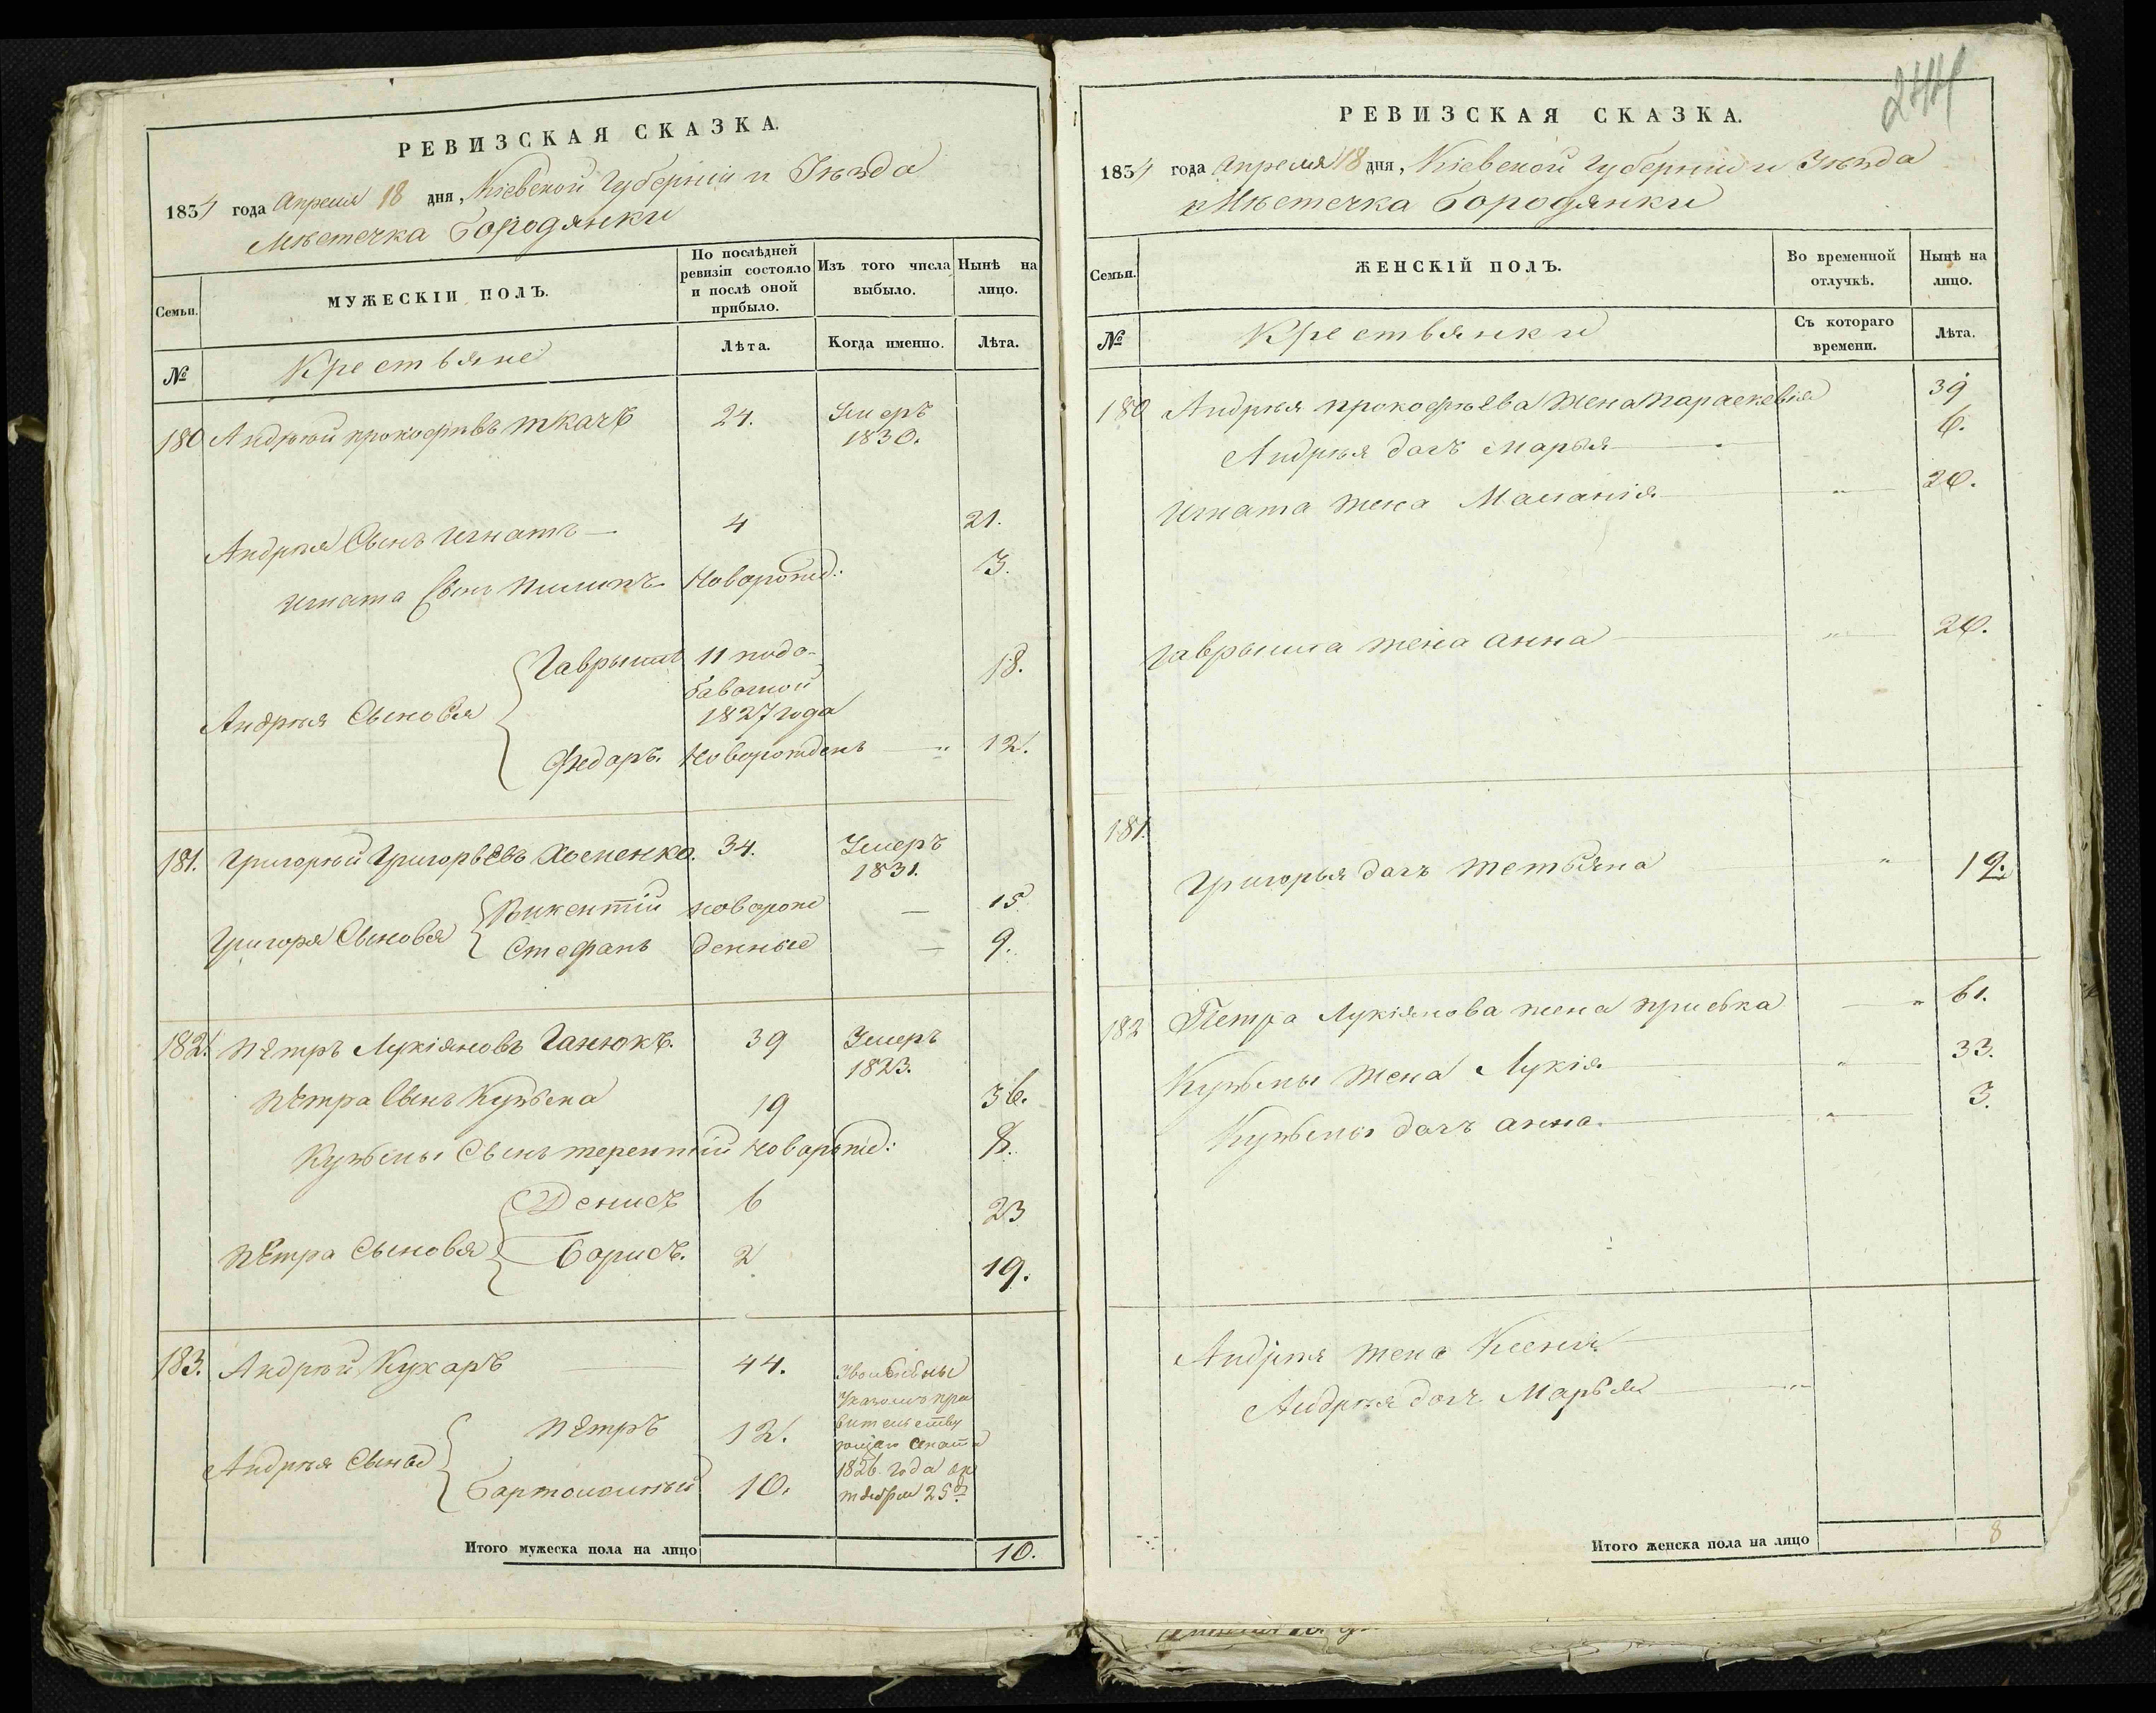 РЕВИЗСКАЯ СКАЗКА.
1834 года Апреля 18 дня, Кіевской Губерніи и Уѣзда
Мѣстечка Бородянки
Семьи.
МУЖЕСКІЙ ПОЛЪ.
По послѣдней
ревизіи состояло
и послѣ оной
прибыло.
Изъ того числа
выбыло.
Нынѣ на
лицо.
№
Крестьяне
Лѣта.
Когда именно.
Лѣта.
180 Андрѣй прокофѣвъ ткачъ 24. Умеръ
1830.
Андрѣя Сынъ Игнатъ 4 21.
Игната Сынъ Пилипъ Новорожд: 3.
Гаврыило 11 подо-
бавочной
1827 года 18.
Андрѣя Сыновья
Федаръ. Новорожденъ " 12.
181. Григорѣй Григорьевъ Хоменко. 34. Умеръ
1831.
Григоря Сыновья
Викентій новорож — 15
Стефанъ денные — 9.
182. Пѣтръ Лукіяновъ Ганюкъ. 39 Умеръ
1823.
Пѣтра Сынъ Кузьма 19 36.
Кузьмы Сынъ терентій Новорожд: 8.
Денисъ 6 23
Пѣтра Сыновья
Борисъ. 2 19.
183. Андрѣй Кухаръ 44.
Указомъ пра
вительству
ющаго Сената
1826 года ок
тября 25
Андрѣя Сыны
Пѣтръ 12.
Бартоломѣй 10.
Итого мужеска пола на лицо 10.
244
РЕВИЗСКАЯ СКАЗКА.
1834 года Апреля 18 дня, Кіевской Губерніи и Уѣзда
Мѣстечка Бородянки
Семьи.
ЖЕНСКІЙ ПОЛЪ.
Во временной
отлучкѣ.
Нынѣ на
лицо.
№
Крестьянки
Съ котораго
времени.
Лѣта.
180 Андрѣя прокофѣева жена Параскевія 39
Андрѣя дочъ Марья 6.
Игната жена Маланія " 20.
Гаврыила жена анна " 20.
181.
Григорья дочъ Тетьяна " 12.
182 Петра Лукіянова жена Приська " 61.
Кузьмы жена Лукія " 33.
Кузьмы дочъ анна. " 3.
Андрѣя жена Ксенія
Андрѣя дочъ Марья
Итого женска пола на лицо 8